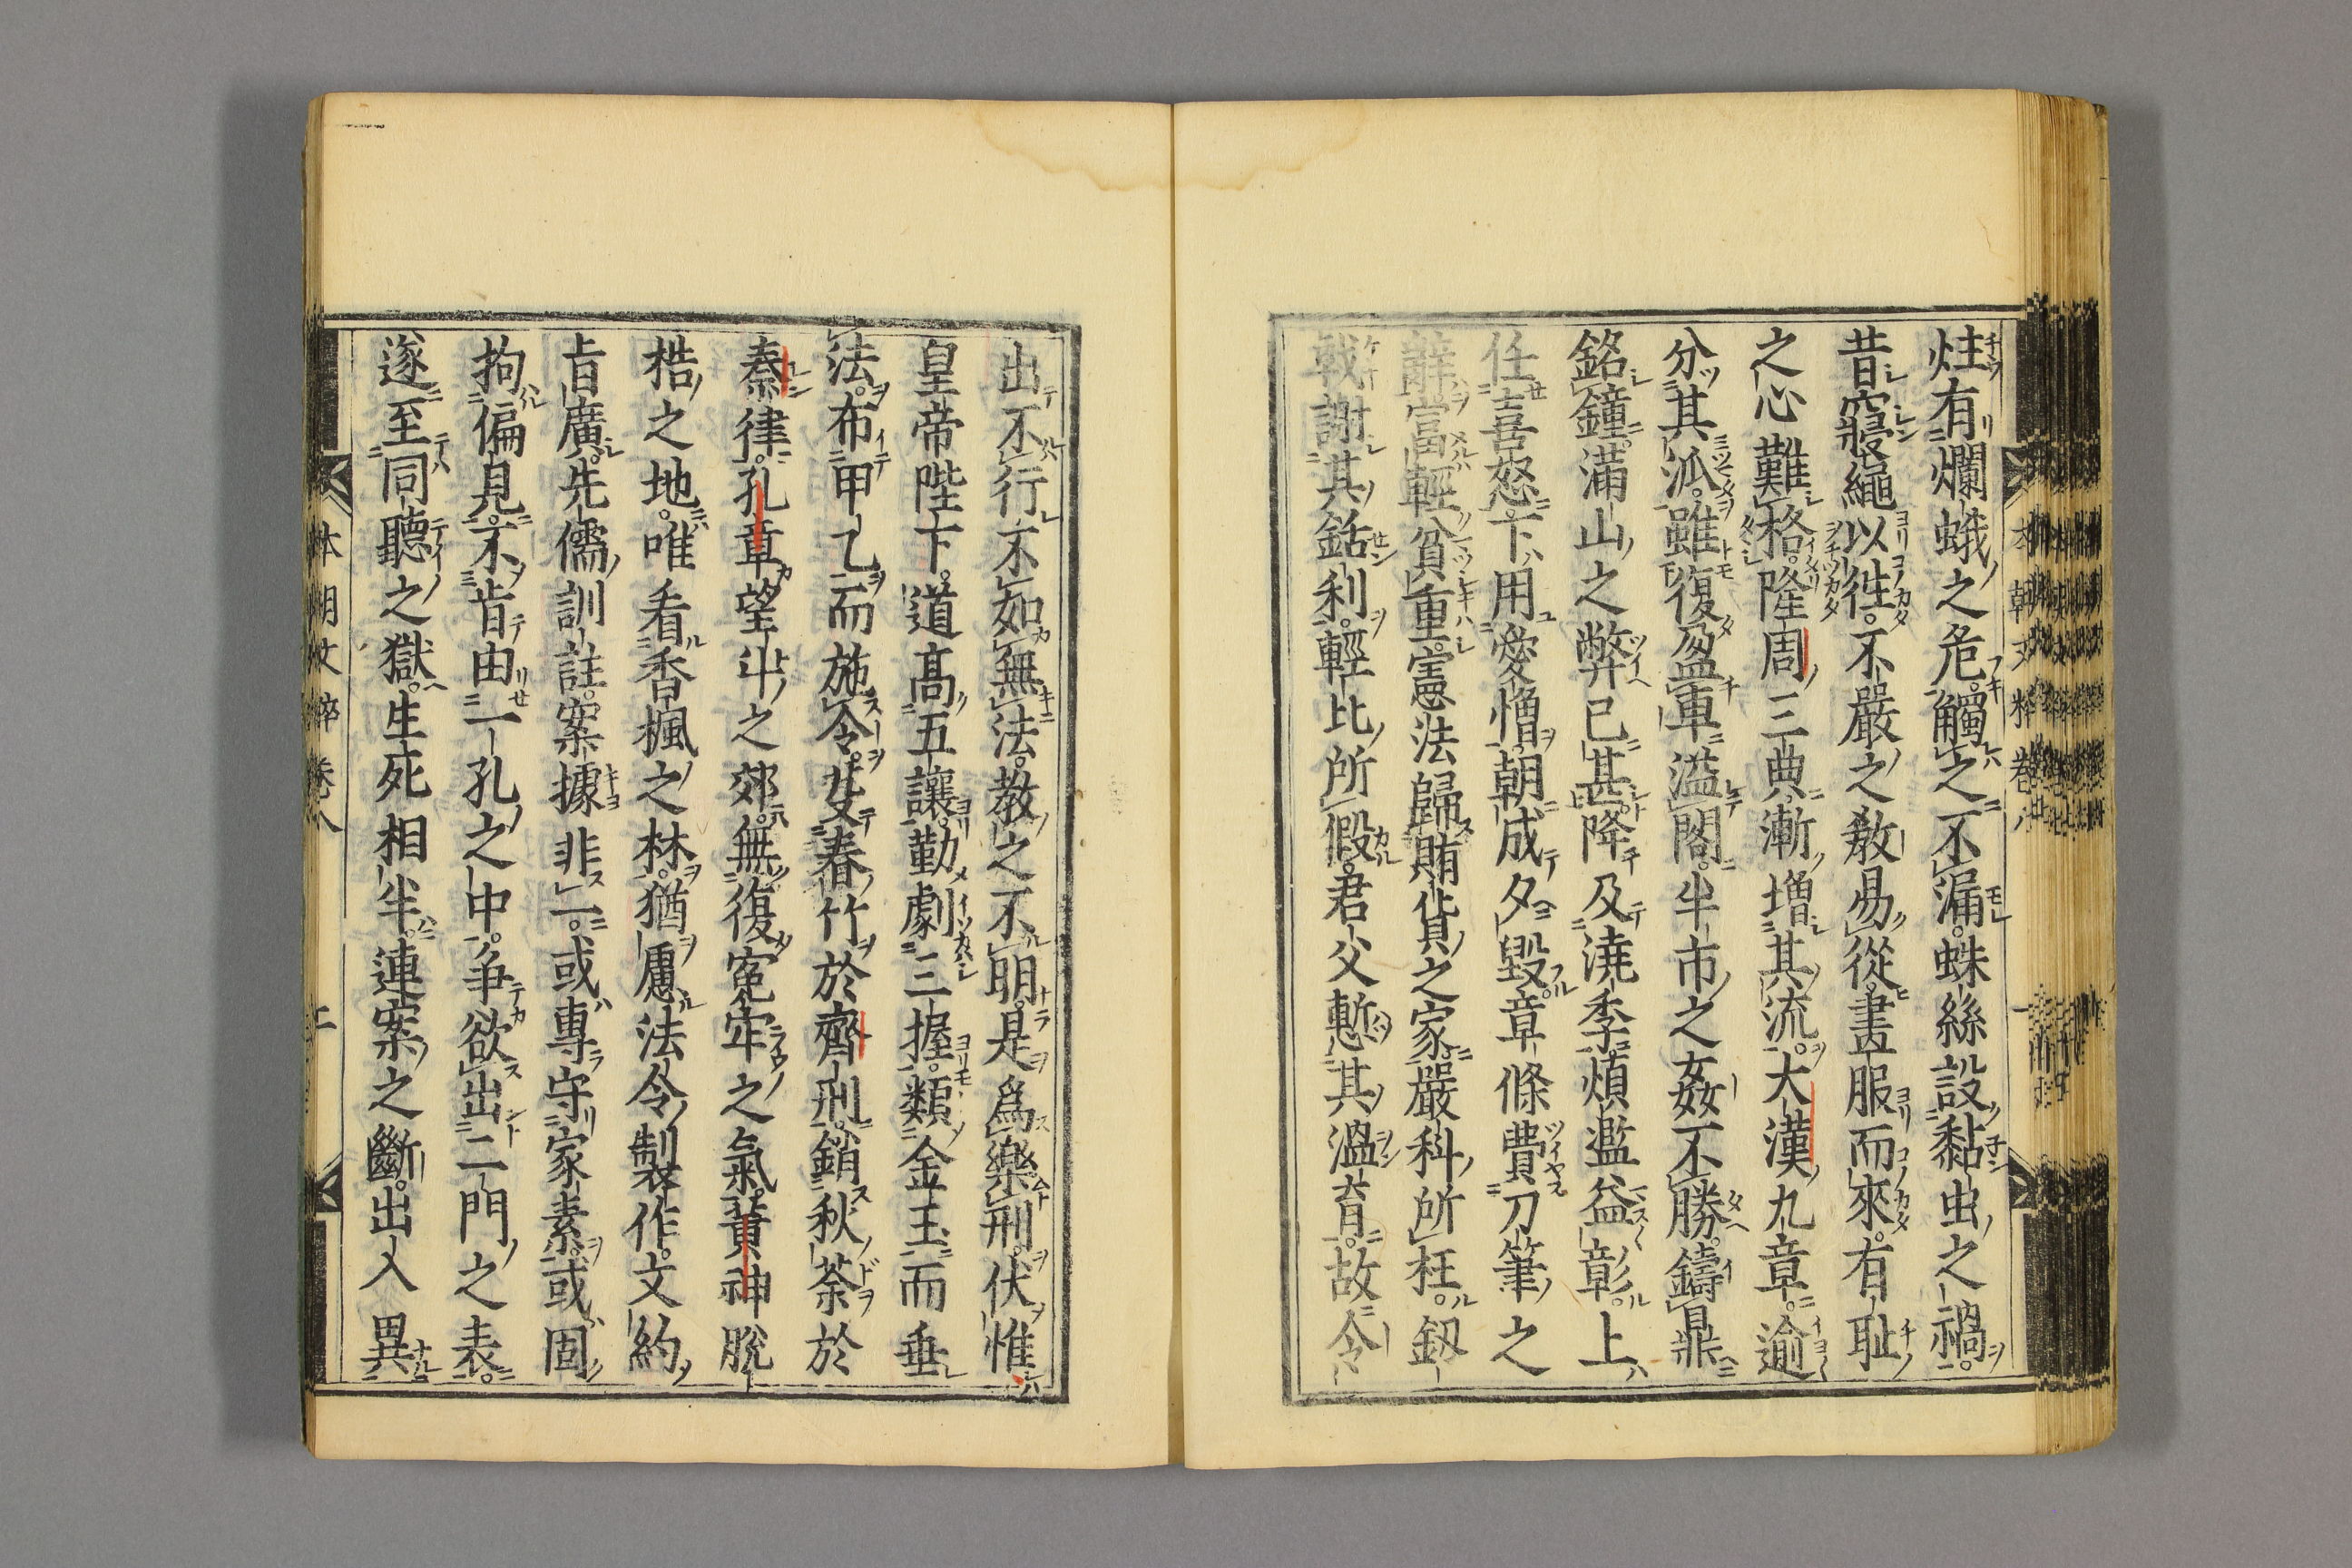 炷有爛蛾之危觸之不漏蛛絲設黏虫之禍
昔寢繩以徃不嚴之教易從畫服而來有耻
之心難格隆周三典漸増其流大漢九章逾
分其派雖復盈車溢閣半市之姦不勝鑄鼎
銘鐘滿山之弊已甚降及澆季煩濫益彰上
任喜怒下用愛憎朝成夕毀章條費刀筆之
辭富輕貧重憲法歸賄貨之家嚴科所枉釼
戟謝其銛利輕比所假君父慙其溫育故令
出不行不如無法教之不明是爲樂刑伏惟
皇帝陛下道髙五讓勤劇三握類金玉而垂
法布甲乙而施令芟春竹於齊刑銷秋荼於
秦律孔章望斗之郊無復寃牢之氣蕢神脫
梏之地唯看香楓之林猶慮法令製作文約
旨廣先儒訓註案據非一或專守家素或固
拘偏見不肯由一孔之中争欲出二門之表
遂至同聽之獄生死相半連案之斷出入異
本朝文粹卷八
二